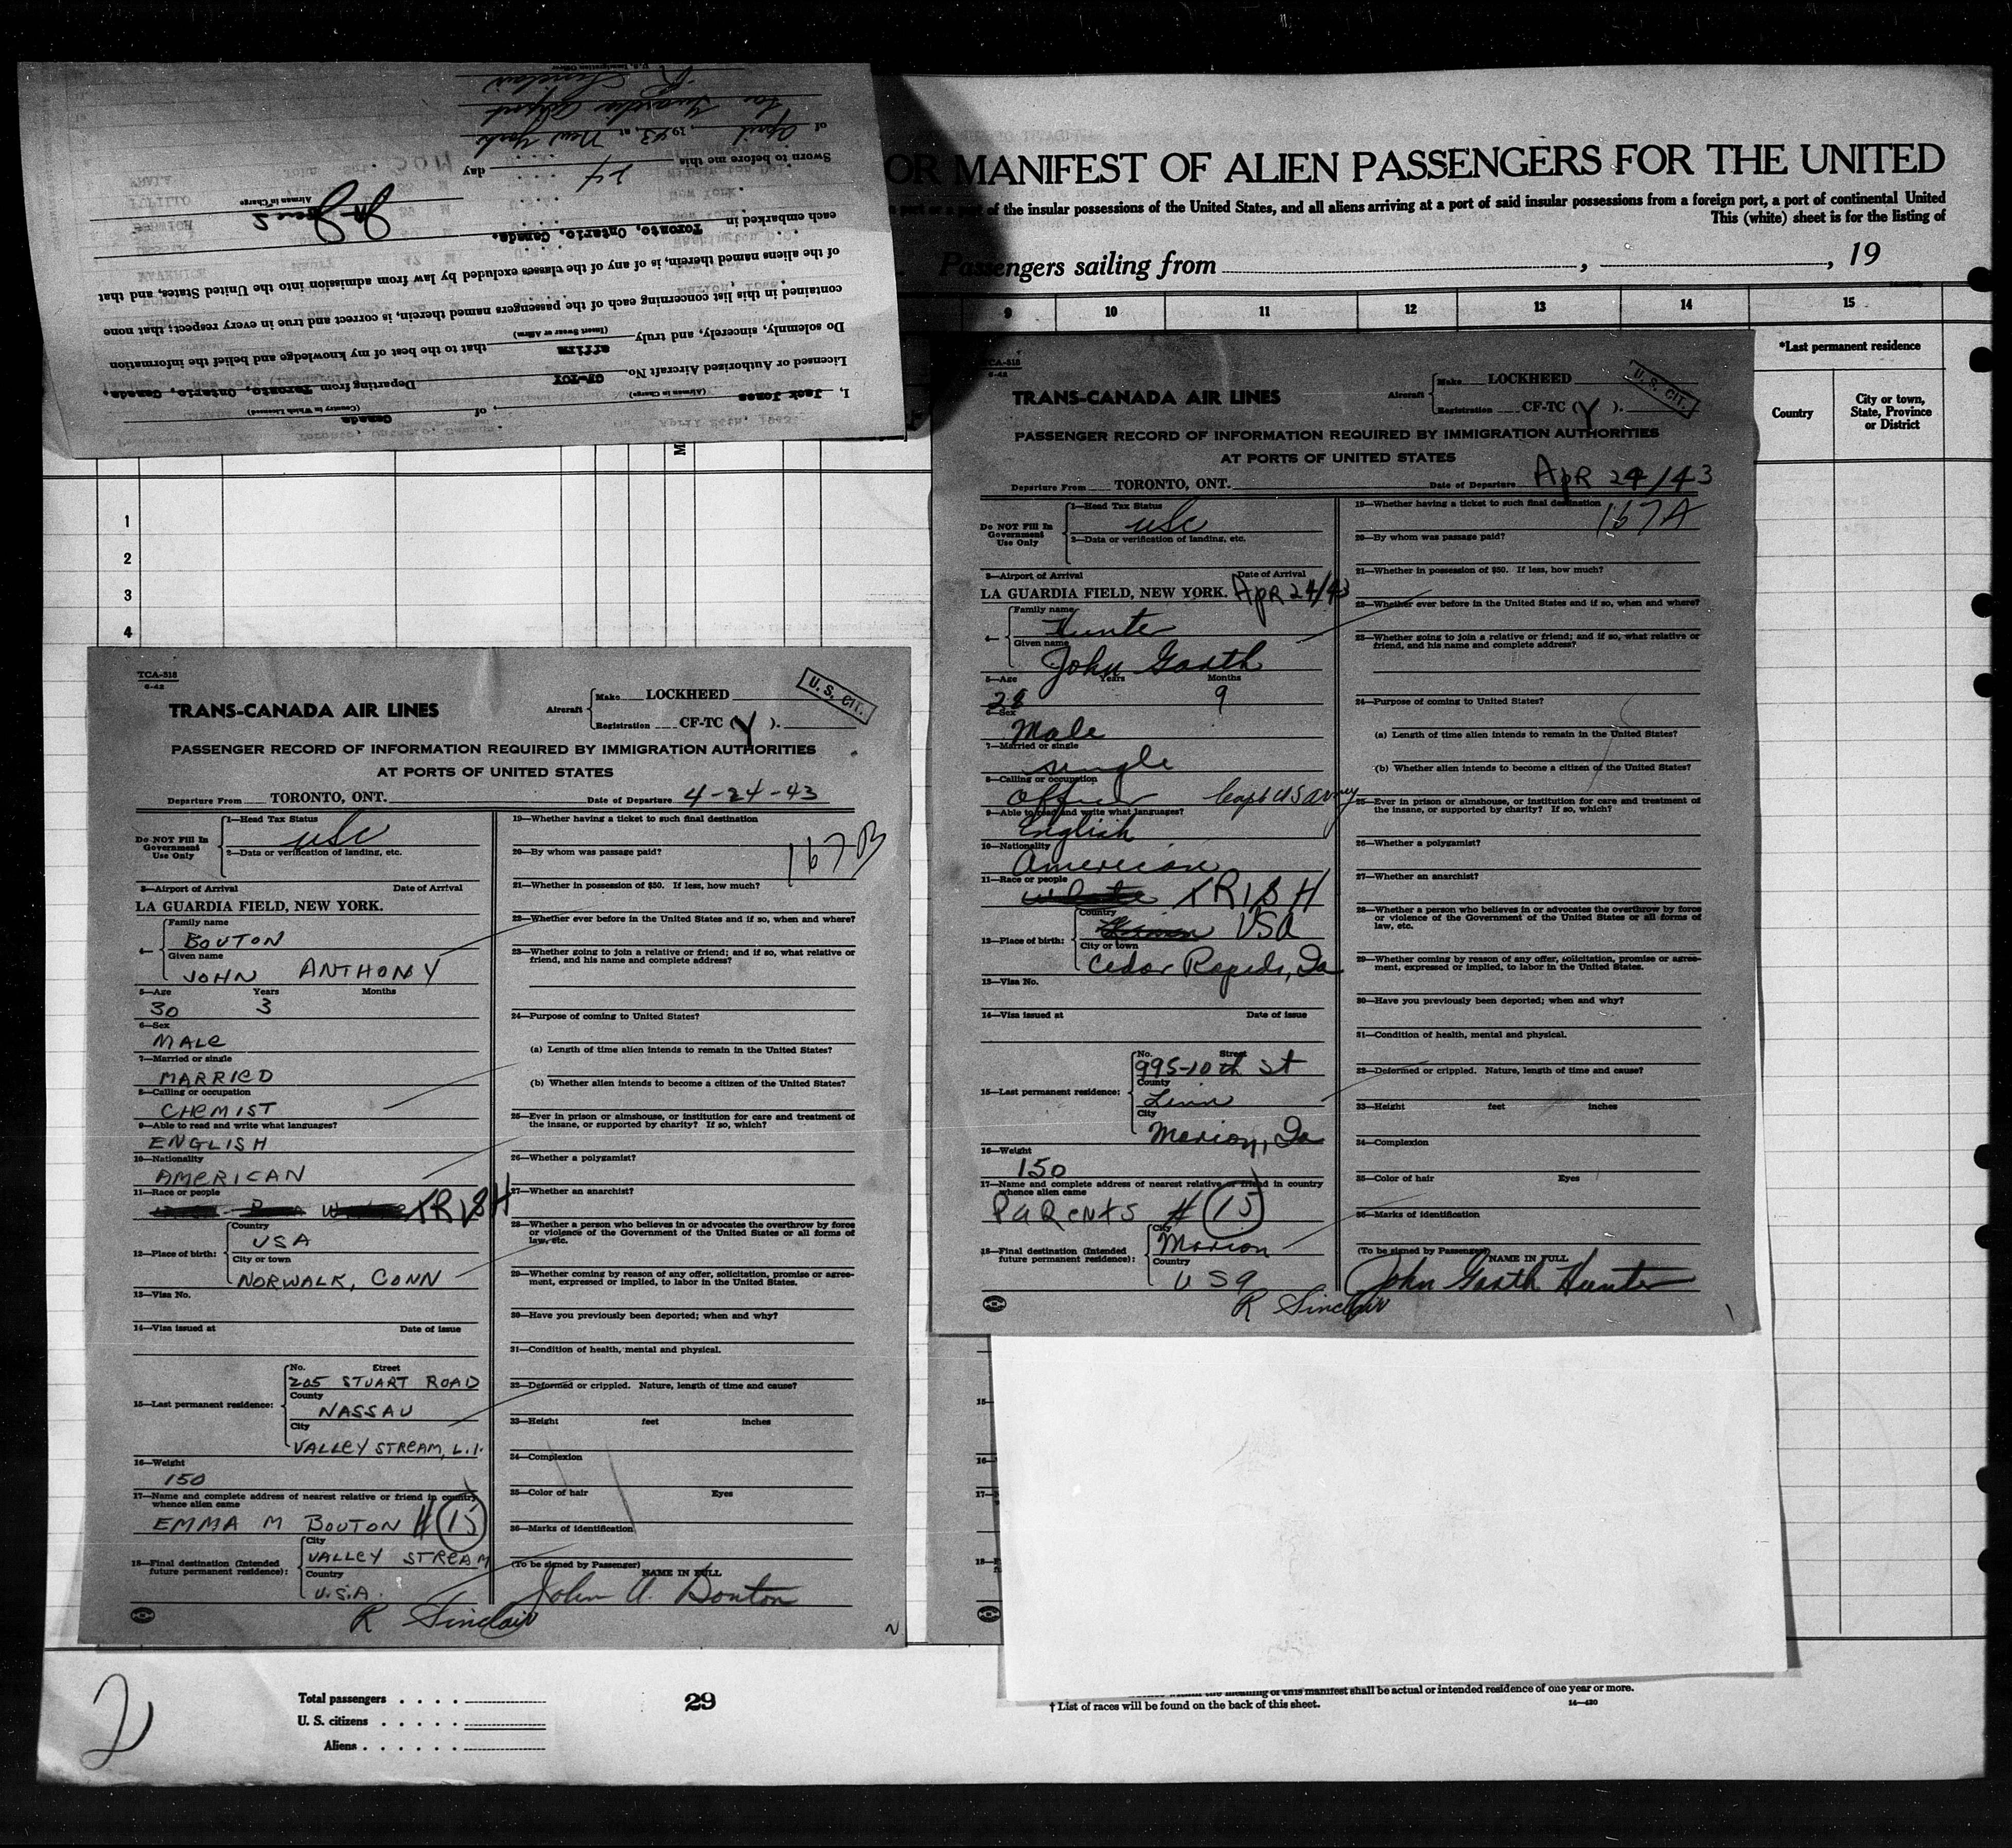 U.S. Immigration Officer
R Sinclair
La Guardia Airport
of April, 1943, at New York
Sworn to before me this 24 day
Airman in Charge
each embarked in Toronto, Ontario, Canada.
of the aliens named therein, is of any of the classes excluded by law from admission into the United States, and that
contained in this list concerning each of the passengers named therein, is correct and true in every respect; that none
(Insert Swear or Affirm)
Do solemnly, sincerely, and truly affirm that to the best of my knowledge and belief the information
Licensed or Authorized Aircraft No. CF-TCY Departing from Toronto, Ontario, Canada,
(Airman in Charge) (Country in Which Licensed)
I, Jack Jones, of Canada
OR MANIFEST OF ALIEN PASSENGERS FOR THE UNITED
of the insular possessions of the United States, and all aliens arriving at a port of said insular possessions from a foreign port, a port of continental United
This (white) sheet is for the listing of
Passengers sailing from , , 19
9 10 11 12 13 14 15
*Last permanent residence
Country
City or town, State, Province or District
1
2
3
4
TCA-518
6-42
TRANS-CANADA AIR LINES
Aircraft Make LOCKHEED
Registration CF-TC (Y).
U. S. CIT.
PASSENGER RECORD OF INFORMATION REQUIRED BY IMMIGRATION AUTHORITIES
AT PORTS OF UNITED STATES
Departure From TORONTO, ONT. Date of Departure 4-24-43
Do NOT Fill In Government Use Only
1—Head Tax Status
USC
2—Data or verification of landing, etc.
3—Airport of Arrival Date of Arrival
LA GUARDIA FIELD, NEW YORK.
4— Family name
BOUTON
Given name
JOHN ANTHONY
5—Age Years Months
30 3
6—Sex
MALE
7—Married or single
MARRIED
8—Calling or occupation
CHEMIST
9—Able to read and write what languages?
ENGLISH
10—Nationality
AMERICAN
11—Race or people
IRISH
12—Place of birth: Country
USA
City or town
NORWALK, CONN
13—Visa No.
14—Visa issued at Date of issue
15—Last permanent residence: No. Street
205 STUART ROAD
County
NASSAU
City
VALLEY STREAM, L.I.
16—Weight
150
17—Name and complete address of nearest relative or friend in country
whence alien came
EMMA M BOUTON # 15
18—Final destination (Intended future permanent residence): City
VALLEY STREAM
Country
U.S.A.
R Sinclair
19—Whether having a ticket to such final destination
167B
20—By whom was passage paid?
21—Whether in possession of $50. If less, how much?
22—Whether ever before in the United States and if so, when and where?
23—Whether going to join a relative or friend; and if so, what relative or
friend, and his name and complete address?
24—Purpose of coming to United States?
(a) Length of time alien intends to remain in the United States?
(b) Whether alien intends to become a citizen of the United States?
25—Ever in prison or almshouse, or institution for care and treatment of
the insane, or supported by charity? If so, which?
26—Whether a polygamist?
27—Whether an anarchist?
28—Whether a person who believes in or advocates the overthrow by force
or violence of the Government of the United States or all forms of
law, etc.
29—Whether coming by reason of any offer, solicitation, promise or agree-
ment, expressed or implied, to labor in the United States.
30—Have you previously been deported; when and why?
31—Condition of health, mental and physical.
32—Deformed or crippled. Nature, length of time and cause?
33—Height feet inches
34—Complexion
35—Color of hair Eyes
36—Marks of identification
(To be signed by Passenger) NAME IN FULL
John A. Bouton
TCA-518
6-42
TRANS-CANADA AIR LINES
Aircraft Make LOCKHEED
Registration CF-TC (Y).
U. S. CIT.
PASSENGER RECORD OF INFORMATION REQUIRED BY IMMIGRATION AUTHORITIES
AT PORTS OF UNITED STATES
Departure From TORONTO, ONT. Date of Departure APR 24/43
Do NOT Fill In Government Use Only
1—Head Tax Status
USC
2—Data or verification of landing, etc.
3—Airport of Arrival Date of Arrival
LA GUARDIA FIELD, NEW YORK. APR 24/43
4— Family name
Hunter
Given name
John Garth
5—Age Years Months
28 9
6—Sex
Male
7—Married or single
single
8—Calling or occupation
Officer Capt US Army
9—Able to read and write what languages?
English
10—Nationality
American
11—Race or people
white IRISH
12—Place of birth: Country
USA
City or town
Cedar Rapids, Ia
13—Visa No.
14—Visa issued at Date of issue
15—Last permanent residence: No. Street
995-10th St
County
Linn
City
Marion, Ia
16—Weight
150
17—Name and complete address of nearest relative or friend in country
whence alien came
PARENTS # 15
18—Final destination (Intended future permanent residence): City
Marion
Country
USA
R Sinclair
19—Whether having a ticket to such final destination
167A
20—By whom was passage paid?
21—Whether in possession of $50. If less, how much?
22—Whether ever before in the United States and if so, when and where?
23—Whether going to join a relative or friend; and if so, what relative or
friend, and his name and complete address?
24—Purpose of coming to United States?
(a) Length of time alien intends to remain in the United States?
(b) Whether alien intends to become a citizen of the United States?
25—Ever in prison or almshouse, or institution for care and treatment of
the insane, or supported by charity? If so, which?
26—Whether a polygamist?
27—Whether an anarchist?
28—Whether a person who believes in or advocates the overthrow by force
or violence of the Government of the United States or all forms of
law, etc.
29—Whether coming by reason of any offer, solicitation, promise or agree-
ment, expressed or implied, to labor in the United States.
30—Have you previously been deported; when and why?
31—Condition of health, mental and physical.
32—Deformed or crippled. Nature, length of time and cause?
33—Height feet inches
34—Complexion
35—Color of hair Eyes
36—Marks of identification
(To be signed by Passenger) NAME IN FULL
John Garth Hunter
15—
16—
17—
18—
2
Total passengers
U. S. citizens
Aliens
29
meaning of this manifest shall be actual or intended residence of one year or more.
† List of races will be found on the back of this sheet.